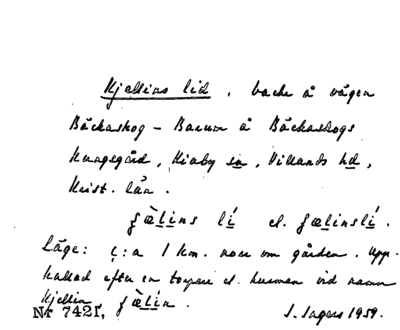 Kjellins lid, backe å vägen
Bäckaskog – Barum å Bäckaskogs
Kungsgård, Kiaby sn, Villands hd,
Krist. län.
fælins lí el. fælinslí.
Läge: c:a 1 km. norr om gården. Upp-
kallad efter en torpare el. husman vid namn
Kjellin fælin.
Nr 7421, I. Ingers 1959.